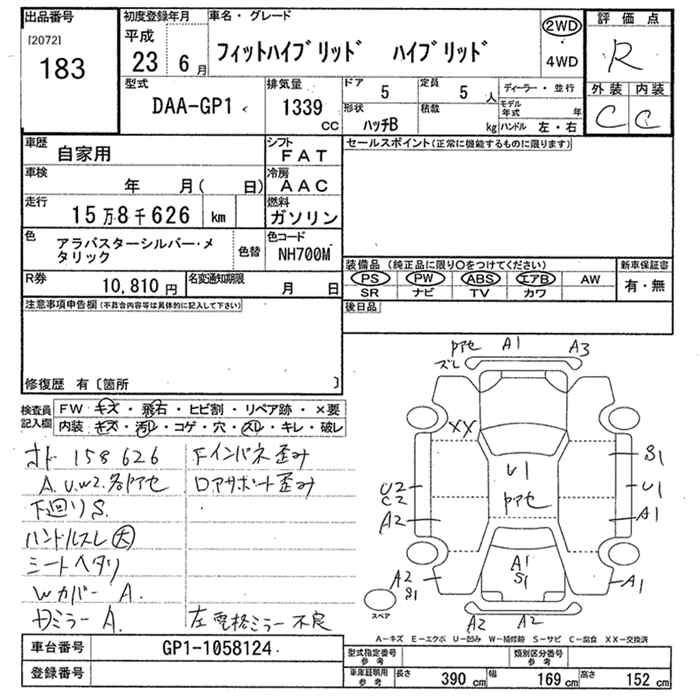 出品番号
[2072]
183
初度登録年月
平成
23 6月
車名・グレード
フィットハイブリッド ハイブリッド
2WD
4WD
評価点
R
型式
DAA-GP1
排気量
1339
CC
ドア
5
定員
5 人
形状
ハッチB
積載
kg
ディーラー・並行
モデル年式 年
ハンドル 左・右
外装 内装
C C
車歴
自家用
シフト
FAT
セールスポイント(正常に機能するものに限ります)
車検
年 月( 日)
冷房
AAC
走行
15万8千626 km
燃料
ガソリン
色
アラバスターシルバー・メタリック
色替
色コード
NH700M
装備品 (純正品に限り○をつけてください)
PS PW ABS エアB AW
SR ナビ TV カワ
新車保証書
有・無
R券
10,810 円
名変通知期限
月 日
後日品
注意事項申告欄(不具合内容等は具体的に記入して下さい)
修復歴 有〔箇所 〕
検査員記入欄
FW キズ・飛石・ヒビ割・リペア跡・×要
内装 キズ・汚レ・コゲ・穴・スレ・キレ・破レ
オド 158626
Fインパネ歪み
A.U.W2.各Pアセ
ロアサポート歪み
下廻りS.
ハンドルスレ大
シートヘタリ
Wカバー A.
Dミラー A.
左電格ミラー不良
Pアセ A1 A3
ズレ
XX
S1
U1
Pアセ
U2
C2
U1
A2
A1
A1
S1
A2
S1
A1
スペア
A2 A2
A-キズ E-エクボ U-凹み W-補修跡 S-サビ C-腐食 XX-交換済
車台番号
GP1-1058124
登録番号
型式指定番号
参考
類別区分番号
参考
車庫証明用
参考
長さ 390 cm
幅 169 cm
高さ 152 cm